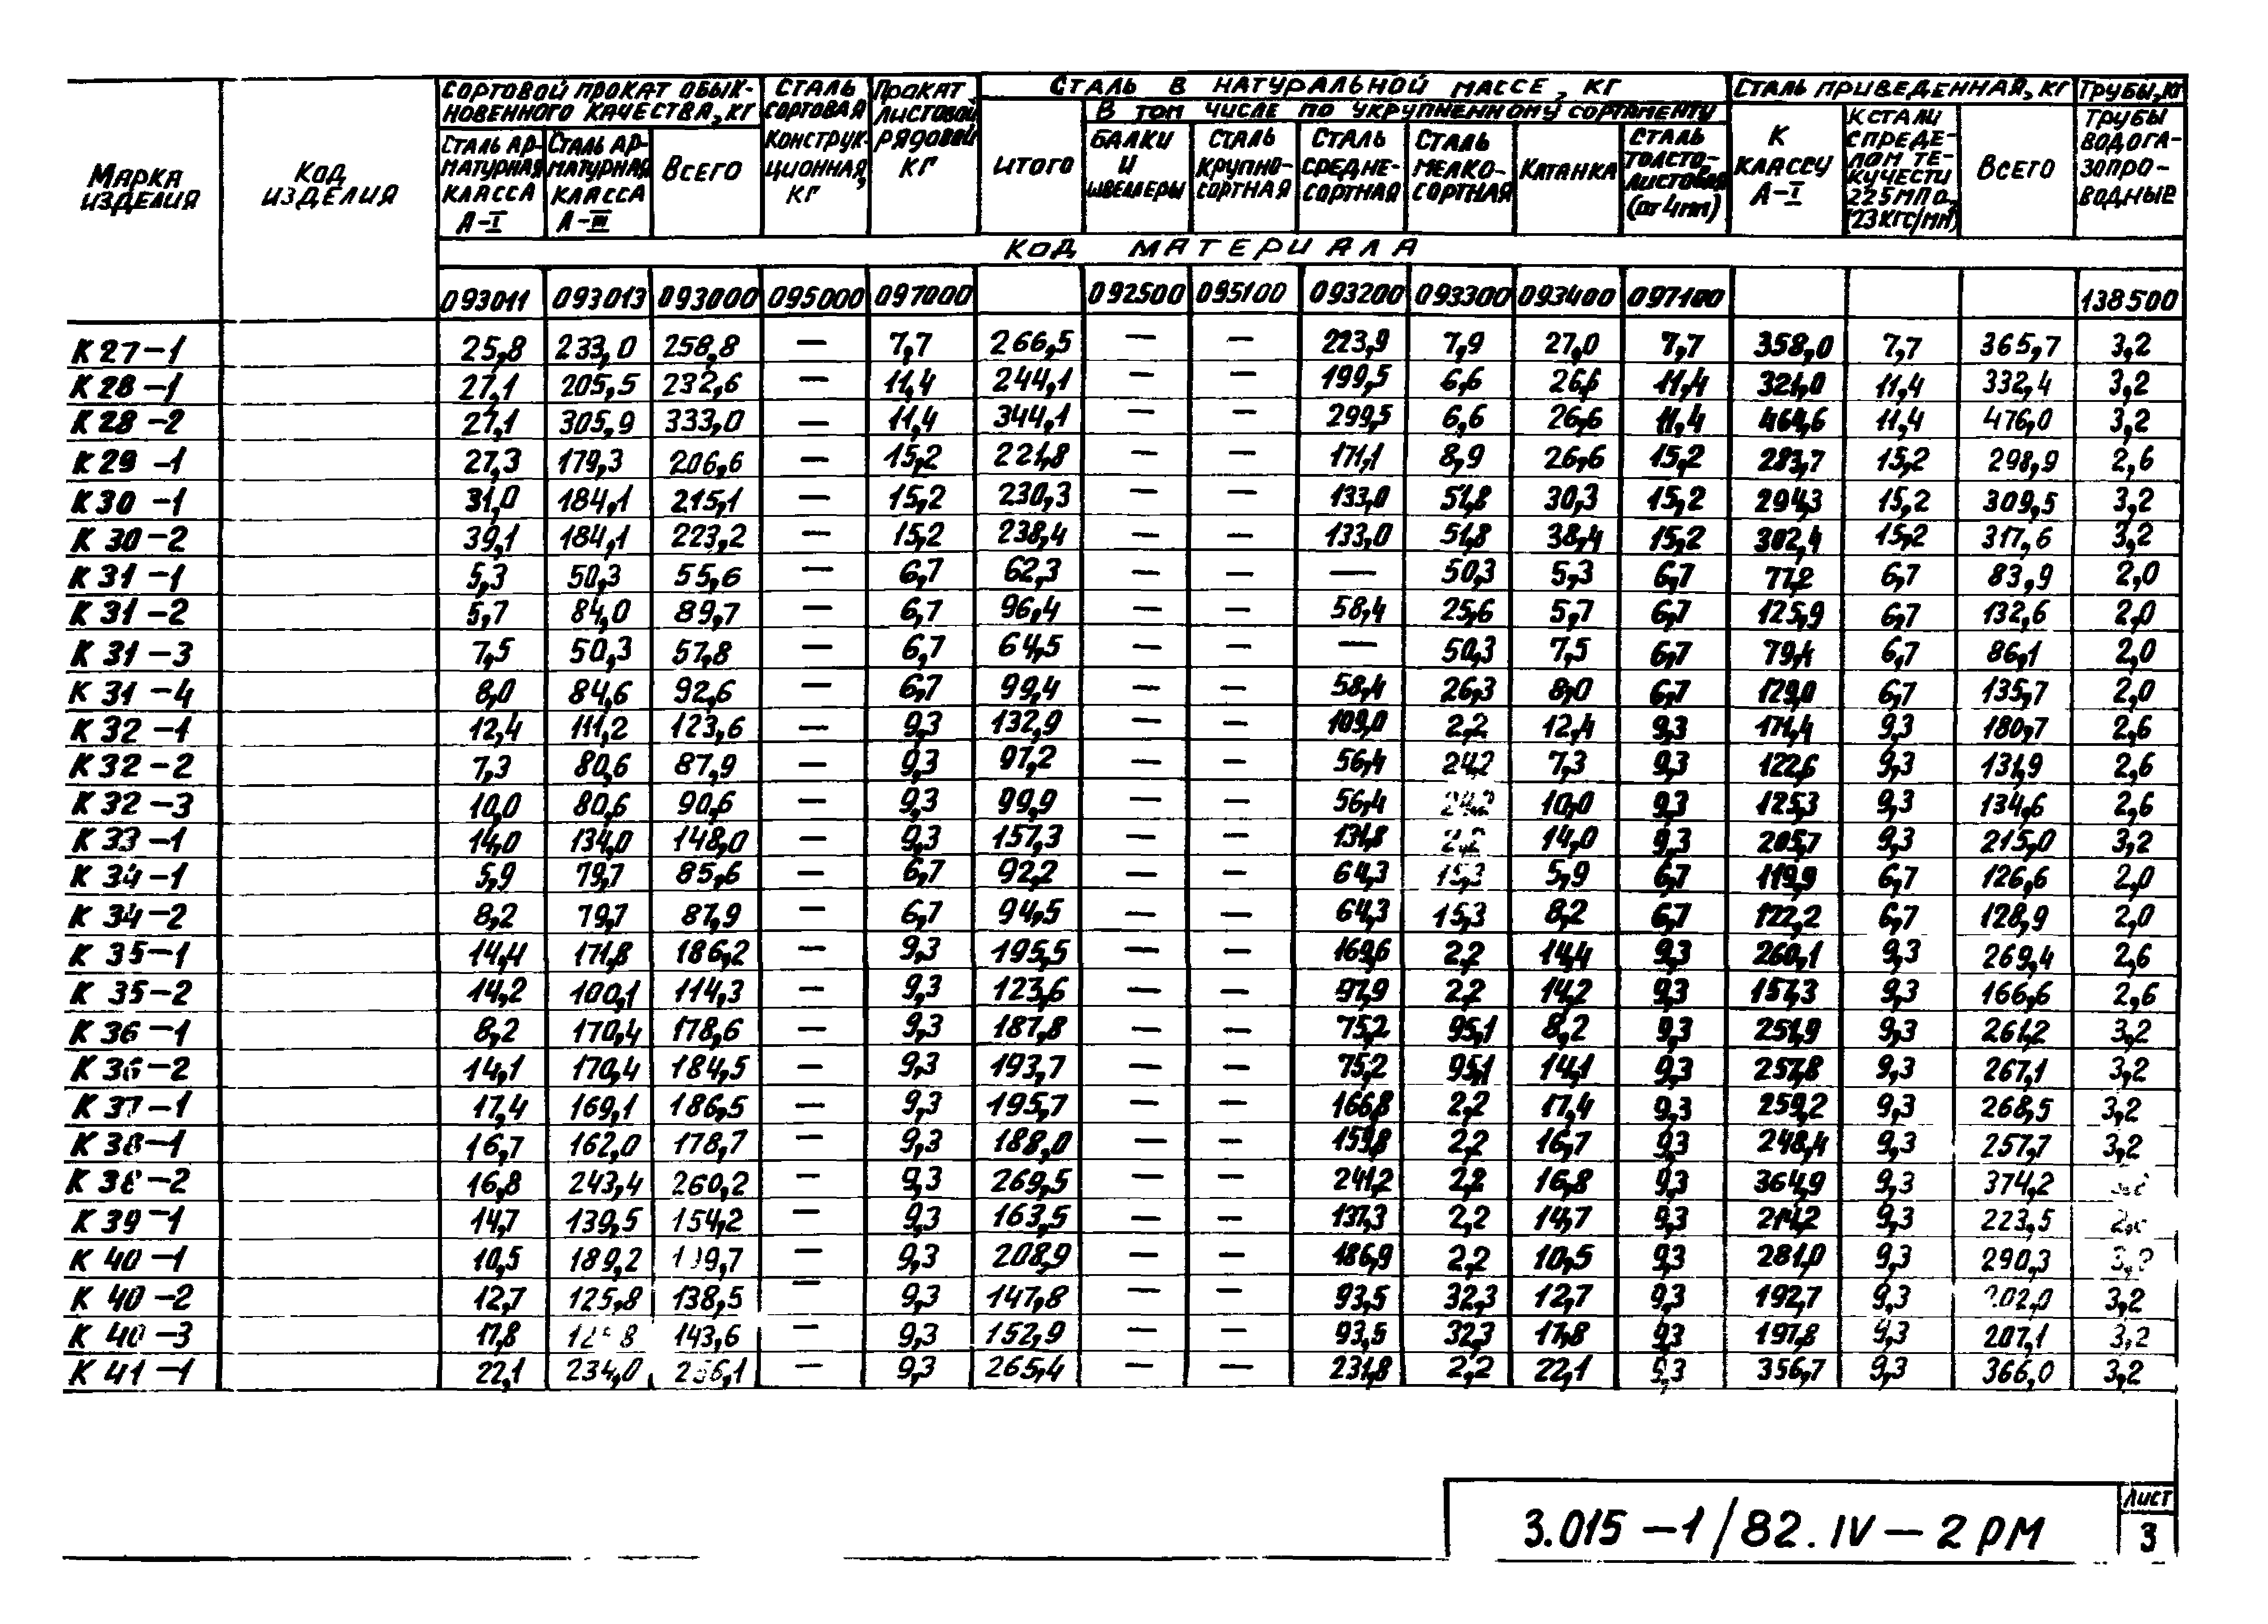 Марка изделия | Код изделия | Сортовой прокат обык-новенного качества, кг | Сталь сортовая конструк-ционная, кг | Прокат листовой рядовой кг | Сталь в натуральной массе, кг | Сталь приведенная, кг | Трубы, кг
В том числе по укрупненному сортаменту
Сталь ар-матурная класса А-I | Сталь ар-матурная класса А-III | Всего | Итого | Балки и швеллеры | Сталь крупно-сортная | Сталь средне-сортная | Сталь мелко-сортная | Катанка | Сталь толсто-листовая (от 4мм) | К классу А-I | К стали с преде-лом те-кучести 225МПа, (23кгс/мм²) | Всего | Трубы водога-зопро-водные
Код материала
093011 | 093013 | 093000 | 095000 | 097000 | 092500 | 095100 | 093200 | 093300 | 093400 | 097100 | 138500
К27-1 25,8 233,0 258,8 — 7,7 266,5 — — 223,9 7,9 27,0 7,7 358,0 7,7 365,7 3,2
К28-1 27,1 205,5 232,6 — 11,4 244,1 — — 199,5 6,6 26,6 11,4 321,0 11,4 332,4 3,2
К28-2 27,1 305,9 333,0 — 11,4 344,1 — — 299,5 6,6 26,6 11,4 464,6 11,4 476,0 3,2
К29-1 27,3 179,3 206,6 — 15,2 221,8 — — 171,1 8,9 26,6 15,2 283,7 15,2 298,9 2,6
К30-1 31,0 184,1 215,1 — 15,2 230,3 — — 133,0 51,8 30,3 15,2 294,3 15,2 309,5 3,2
К30-2 39,1 184,1 223,2 — 15,2 238,4 — — 133,0 51,8 38,4 15,2 302,4 15,2 317,6 3,2
К31-1 5,3 50,3 55,6 — 6,7 62,3 — — — 50,3 5,3 6,7 77,2 6,7 83,9 2,0
К31-2 5,7 84,0 89,7 — 6,7 96,4 — — 58,4 25,6 5,7 6,7 125,9 6,7 132,6 2,0
К31-3 7,5 50,3 57,8 — 6,7 64,5 — — — 50,3 7,5 6,7 79,4 6,7 86,1 2,0
К31-4 8,0 84,6 92,6 — 6,7 99,4 — — 58,4 26,3 8,0 6,7 129,0 6,7 135,7 2,0
К32-1 12,4 111,2 123,6 — 9,3 132,9 — — 109,0 2,2 12,4 9,3 171,4 9,3 180,7 2,6
К32-2 7,3 80,6 87,9 — 9,3 97,2 — — 56,4 24,2 7,3 9,3 122,6 9,3 131,9 2,6
К32-3 10,0 80,6 90,6 — 9,3 99,9 — — 56,4 24,2 10,0 9,3 125,3 9,3 134,6 2,6
К33-1 14,0 134,0 148,0 — 9,3 157,3 — — 131,8 2,2 14,0 9,3 205,7 9,3 215,0 3,2
К34-1 5,9 79,7 85,6 — 6,7 92,2 — — 64,3 15,3 5,9 6,7 119,9 6,7 126,6 2,0
К34-2 8,2 79,7 87,9 — 6,7 94,5 — — 64,3 15,3 8,2 6,7 122,2 6,7 128,9 2,0
К35-1 14,4 171,8 186,2 — 9,3 195,5 — — 169,6 2,2 14,4 9,3 260,1 9,3 269,4 2,6
К35-2 14,2 100,1 114,3 — 9,3 123,6 — — 97,9 2,2 14,2 9,3 157,3 9,3 166,6 2,6
К36-1 8,2 170,4 178,6 — 9,3 187,8 — — 75,2 95,1 8,2 9,3 251,9 9,3 261,2 3,2
К36-2 14,1 170,4 184,5 — 9,3 193,7 — — 75,2 95,1 14,1 9,3 257,8 9,3 267,1 3,2
К37-1 17,4 169,1 186,5 — 9,3 195,7 — — 166,8 2,2 17,4 9,3 259,2 9,3 268,5 3,2
К38-1 16,7 162,0 178,7 — 9,3 188,0 — — 159,8 2,2 16,7 9,3 248,4 9,3 257,7 3,2
К38-2 16,8 243,4 260,2 — 9,3 269,5 — — 241,2 2,2 16,8 9,3 364,9 9,3 374,2
К39-1 14,7 139,5 154,2 — 9,3 163,5 — — 137,3 2,2 14,7 9,3 214,2 9,3 223,5
К40-1 10,5 189,2 199,7 — 9,3 208,9 — — 186,9 2,2 10,5 9,3 281,0 9,3 290,3
К40-2 12,7 125,8 138,5 — 9,3 147,8 — — 93,5 32,3 12,7 9,3 192,7 9,3 202,0 3,2
К40-3 17,8 125,8 143,6 — 9,3 152,9 — — 93,5 32,3 17,8 9,3 197,8 9,3 207,1 3,2
К41-1 22,1 234,0 256,1 — 9,3 265,4 — — 231,8 2,2 22,1 9,3 356,7 9,3 366,0 3,2
3.015-1/82.IV-2РМ
Лист
3